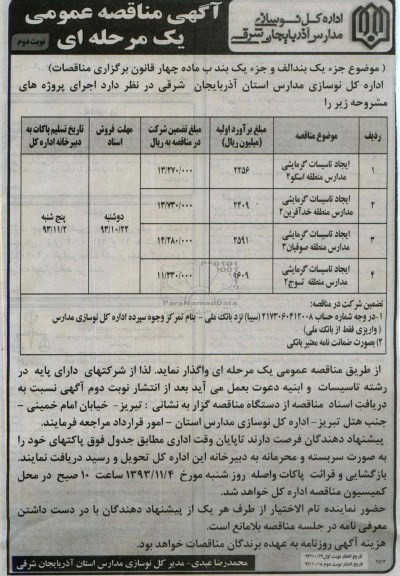 اداره کل نوسازی
مدارس آذربایجان شرقی
آگهی مناقصه عمومی
یک مرحله ای
نوبت دوم
( موضوع جزء یک بندالف و جزء یک بند ب ماده چهار قانون برگزاری مناقصات)
اداره کل نوسازی مدارس استان آذربایجان شرقی در نظر دارد اجرای پروژه های
مشروحه زیر را
ردیف
موضوع مناقصه
مبلغ برآورد اولیه
(میلیون ریال)
مبلغ تضمین شرکت
در مناقصه به ریال
مهلت فروش
اسناد
تاریخ تسلیم پاکات به
دبیرخانه اداره کل
۱
ایجاد تاسیسات گرمایشی
مدارس منطقه اسکو۲
۲۲۵۶
۱۳/۲۷۰/۰۰۰
۲
ایجاد تاسیسات گرمایشی
مدارس منطقه خدآفرین۲
۲۴۰۹
۱۳/۷۳۰/۰۰۰
۳
ایجاد تاسیسات گرمایشی
مدارس منطقه صوفیان۳
۲۵۹۱
۱۴/۲۸۰/۰۰۰
۴
ایجاد تاسیسات گرمایشی
مدارس منطقه تسوج۲
۱۶۰۹
۱۱/۳۳۰/۰۰۰
دوشنبه
۹۳/۱۰/۲۲
پنج شنبه
۹۳/۱۱/۲
ParsNamadData
تضمین شرکت در مناقصه:
۱-در وجه شماره حساب ۲۱۷۳۰۶۰۴۱۲۰۰۸ (سیبا) نزد بانک ملی - بنام تمرکز وجوه سپرده اداره کل نوسازی مدارس
( واریزی فقط از بانک ملی)
۲) بصورت ضمانت نامه معتبر بانکی
از طریق مناقصه عمومی یک مرحله ای واگذار نماید. لذا از شرکتهای دارای پایه در
رشته تاسیسات و ابنیه دعوت بعمل می آید بعد از انتشار نوبت دوم آگهی نسبت به
دریافت اسناد مناقصه از دستگاه مناقصه گزار به نشانی : تبریز- خیابان امام خمینی -
جنب هتل تبریز- اداره کل نوسازی مدارس استان - امور قرارداد مراجعه فرمایند.
پیشنهاد دهندگان فرصت دارند تاپایان وقت اداری مطابق جدول فوق پاکتهای خود را
به صورت سربسته و محرمانه به دبیرخانه این اداره کل تحویل و رسید دریافت نمایند.
بازگشایی و قرائت پاکات واصله روز شنبه مورخ ۱۳۹۳/۱۱/۴ ساعت ۱۰ صبح در محل
کمیسیون مناقصه اداره کل خواهد شد.
حضور نماینده تام الاختیار از طرف هر یک از پیشنهاد دهندگان با در دست داشتن
معرفی نامه در جلسه مناقصه بلامانع است.
هزینه آگهی روزنامه به عهده برندگان مناقصات خواهد بود.
محمدرضا عیدی - مدیر کل نوسازی مدارس استان آذربایجان شرقی